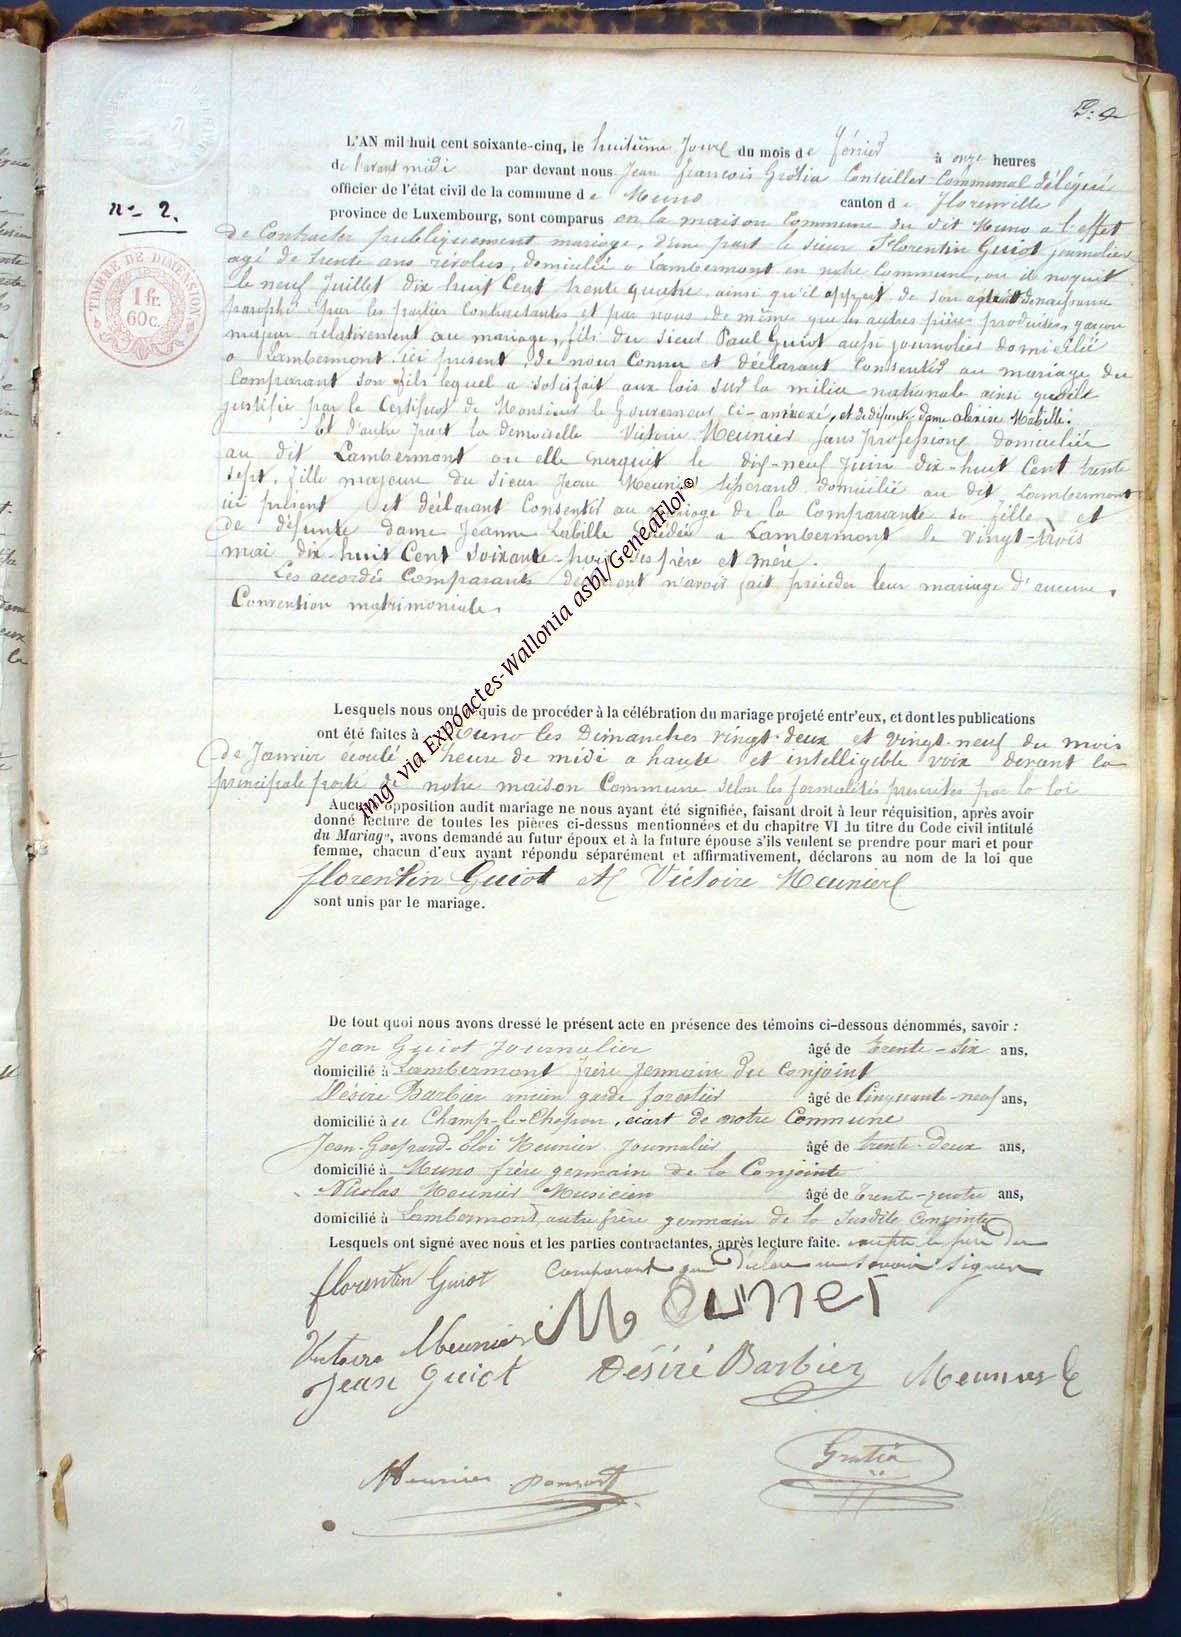 nº 2.
TIMBRE DE DIMENSION
1 fr.
60 c.
L'AN mil huit cent soixante-cinq, le huitième jour du mois de février à onze heures
de l'avant midi par devant nous Jean François Gratia Conseiller Communal délégué
officier de l'état civil de la commune de Muno canton de Florenville
province de Luxembourg, sont comparus en la maison Commune du dit Muno a l'effet
de Contracter publiquement mariage, d'une part le sieur Florentin Guiot journalier
agé de trente ans révolus, domicilié a Lambermont en notre Commune, ou il naquit
le neuf Juillet dix huit Cent trente quatre, ainsi qu'il appert de son acte de naissance
paraphé par les parties Contractantes et par nous de même que les autres pièces produites, garçon
majeur relativement au mariage, fils du sieur Paul Guiot aussi journalier domicilié
a Lambermont ici présent, de nous Connu et déclarant Consentir au mariage du
Comparant son fils lequel a satisfait aux lois sur la milice nationale ainsi qu'il le
justifie par le Certificat de Monsieur le Gouverneur ci-annexé, et de défunte dame Mabille.
Et d'autre part la demoiselle Victoire Meunier sans profession domiciliée
au dit Lambermont ou elle naquit le dix-neuf juin dix-huit Cent trente
sept, fille majeure du sieur Jean Meunier tisserand domicilié au dit Lambermont
ici présent et déclarant Consentir au mariage de la Comparante sa fille et
de défunte dame Jeanne Labille décédée a Lambermont le vingt-trois
mai dix-huit Cent soixante ses père et mère.
Les accordés Comparants déclarent n'avoir fait précéder leur mariage d'aucune
Convention matrimoniale.
Lesquels nous ont requis de procéder à la célébration du mariage projeté entr'eux, et dont les publications
ont été faites à Muno les Dimanches vingt-deux et vingt-neuf du mois
de Janvier écoulé heure de midi a haute et intelligible voix devant la
principale porte de notre maison Commune selon les formalités prescrites par la loi
Aucune opposition audit mariage ne nous ayant été signifiée, faisant droit à leur réquisition, après avoir
donné lecture de toutes les pièces ci-dessus mentionnées et du chapitre VI du titre du Code civil intitulé
du Mariage, avons demandé au futur époux et à la future épouse s'ils veulent se prendre pour mari et pour
femme, chacun d'eux ayant répondu séparément et affirmativement, déclarons au nom de la loi que
florentin Guiot et Victoire Meunier
sont unis par le mariage.
De tout quoi nous avons dressé le présent acte en présence des témoins ci-dessous dénommés, savoir :
Jean Guiot Journalier âgé de trente-six ans,
domicilié à Lambermont frère germain du Conjoint
Désiré Barbier ancien garde forestier âgé de Cinquante-neuf ans,
domicilié à Champ-le- écart de notre Commune
Jean-Gaspard-Eloi Meunier Journalier âgé de trente-deux ans,
domicilié à Muno frère germain de la Conjointe
Nicolas Meunier Musicien âgé de trente-quatre ans,
domicilié à Lambermont, autre frère germain de la susdite Conjointe
Lesquels ont signé avec nous et les parties contractantes, après lecture faite. excepté le père du
Comparant qui déclare ne savoir signer
florentin Guiot
Meunier
Victoire Meunier
Jean Guiot
Désiré Barbier
Meunier
Meunier
Gratia
img. via Expoactes-Wallonia asbl/GeneaFloi®